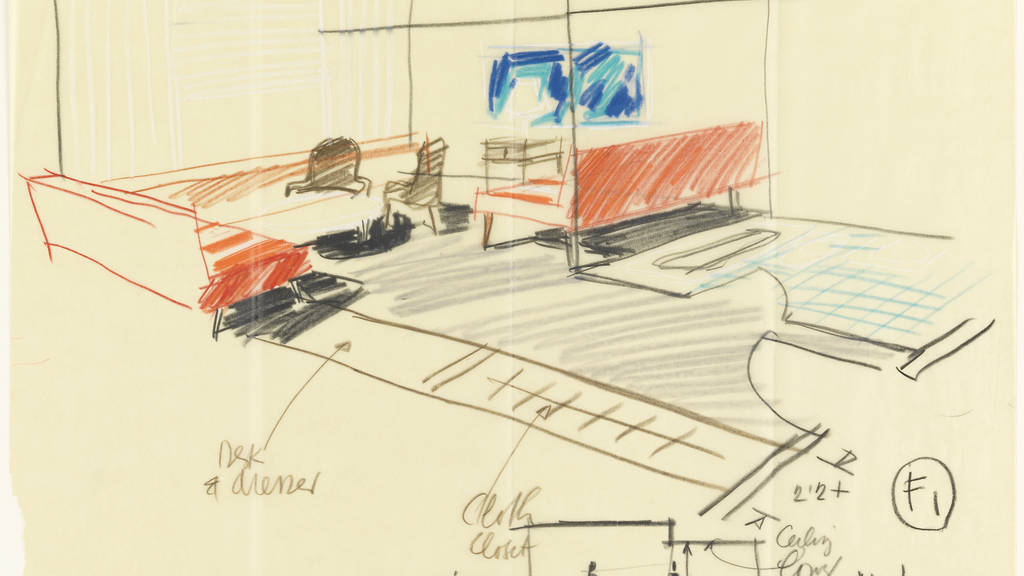 Desk
& dresser
Cloth
Closet
2'2+
F1
Ceiling
Lower